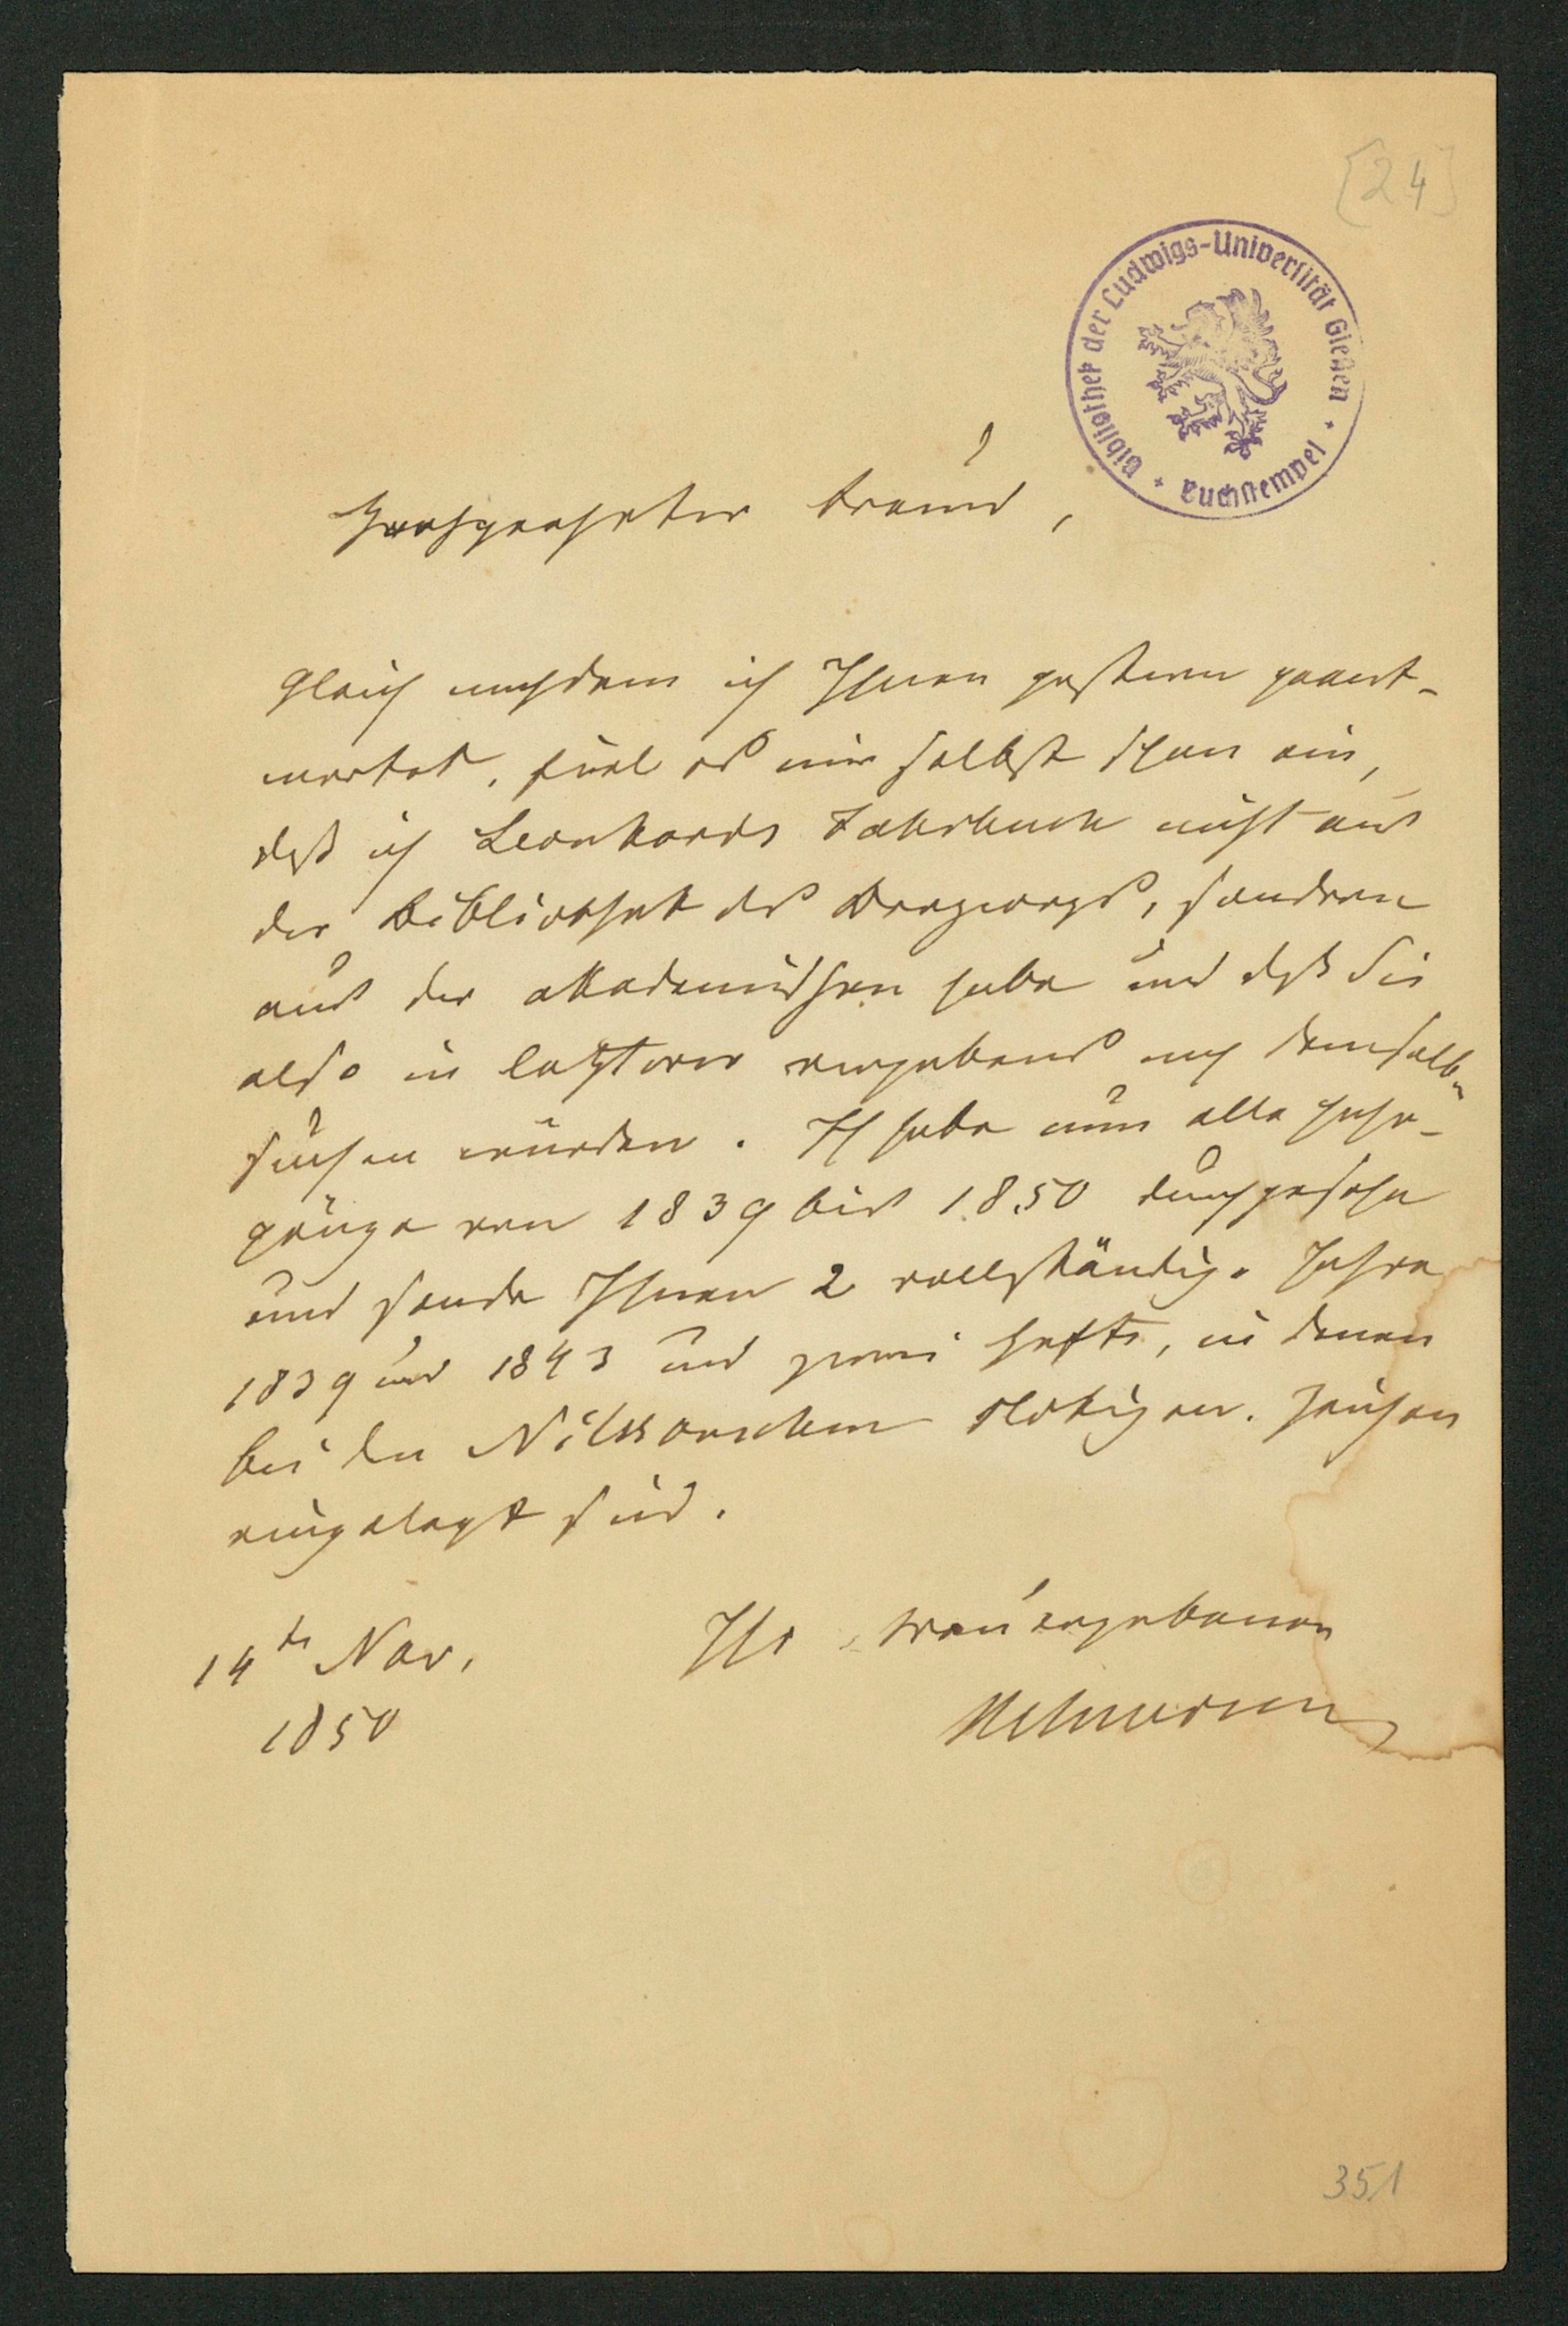 [24]
Bibliothek der Ludwigs-Universität Gießen
Buchstempel
Hochgeehrter Freund,
Gleich nachdem ich Ihnen gestern geant-
wortet, fiel es mir selbst schon ein,
daß ich Leonhards Jahrbuch nicht aus
der Bibliothek des Bergcorps, sondern
aus der akademischen habe und daß Sie
also in letzterer vergebens nach demselbn
suchen würden. Ich habe nun alle Jahr-
gänge von 1839 bis 1850 durchgesehn
und sende Ihnen 2 vollständige Jahre
1839 und 1843 und zwei Hefte, in denen
bei den Notizen Zeichen
eingelegt sind.
Ihr treu ergebener
14tn Nov.
1850
351